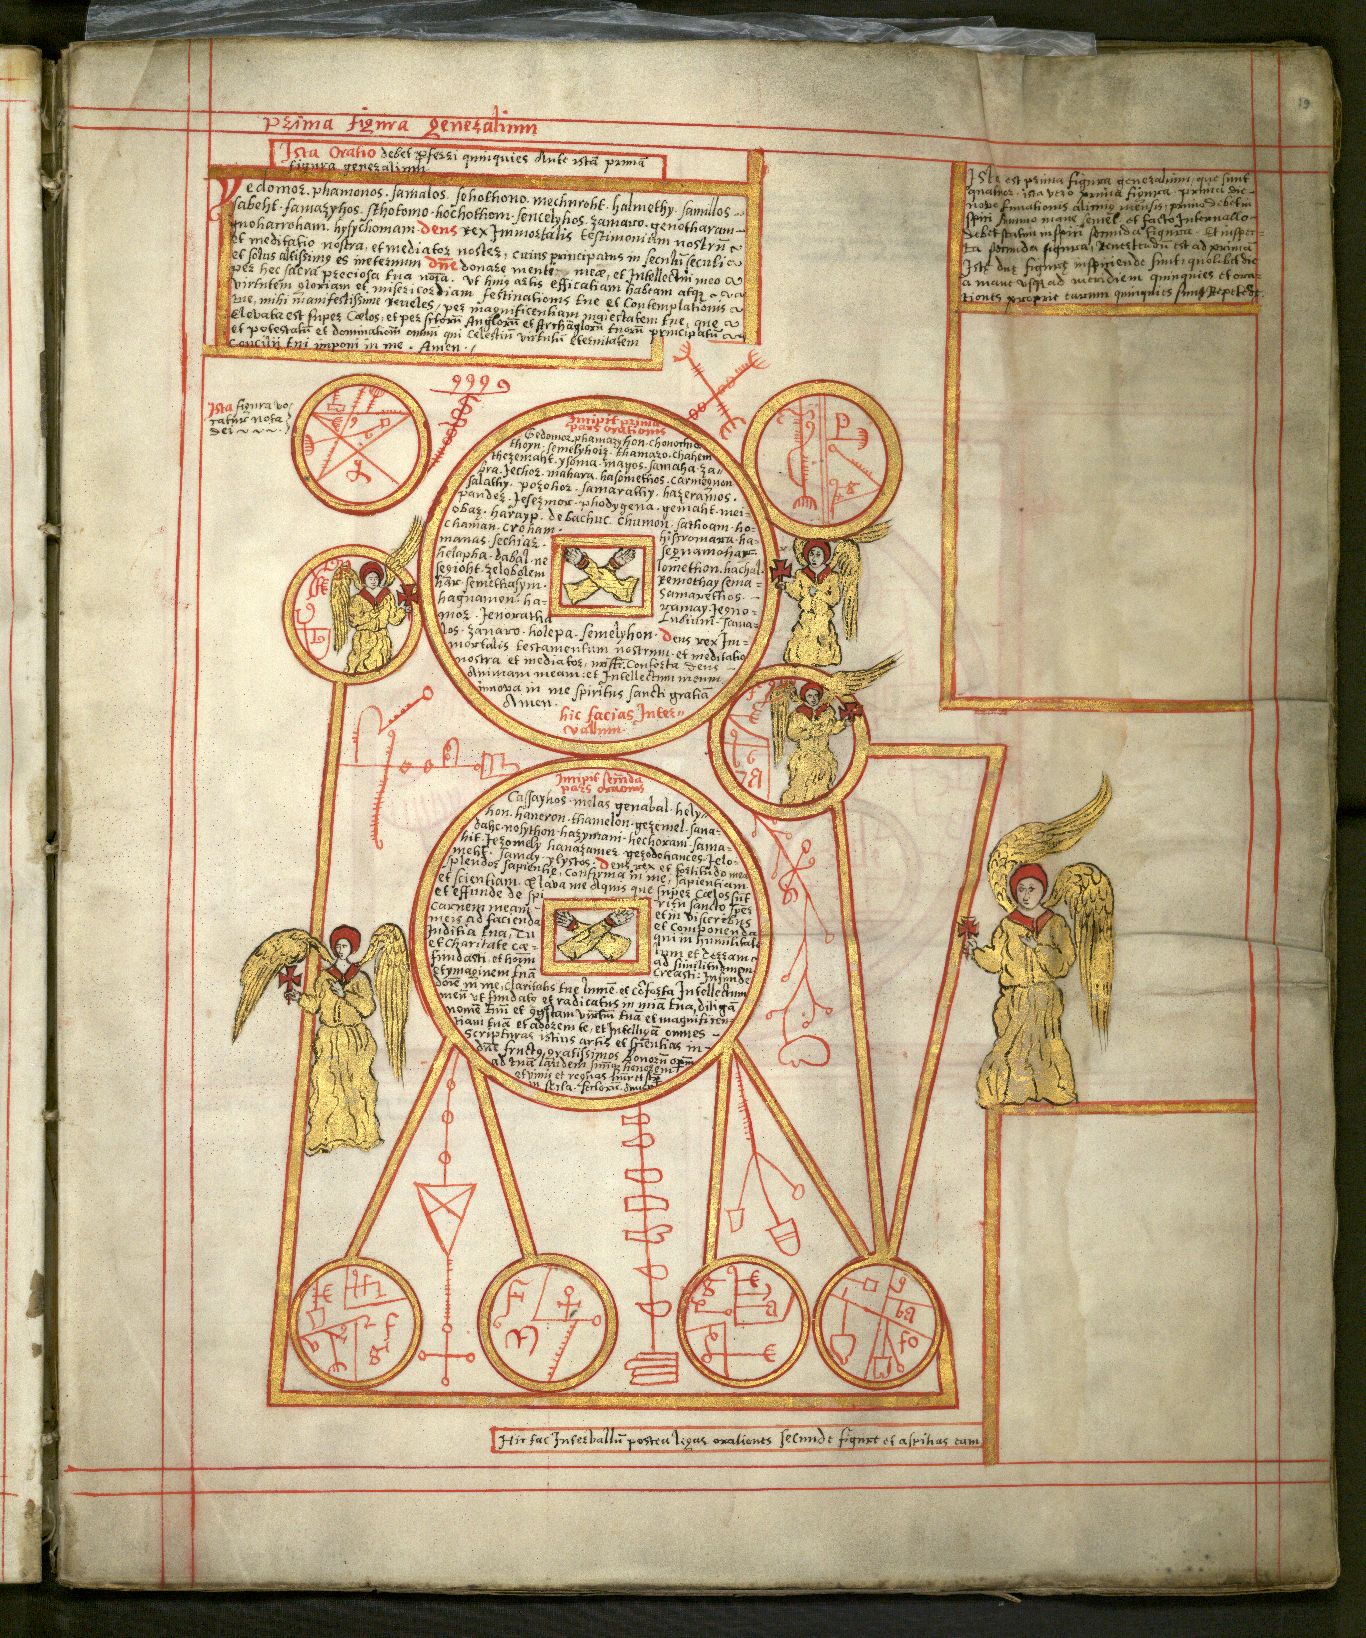 19
Prima figura generalium
Ista Oratio debet proferri quinquies Ante istā primā
figura generalium
Yedomoz. phamonos. samalos. sohothono. mechnroht. halmethy. samillos
sabeht. samazyhos. sthotomo. hochothiom. sencelyhos. zamaro. genotharam
gnoharroham. hysychomam. deus rex Immortalis testimonium nostrū
et meditatio nostra, et mediator noster, cuius principatus in seculū seculi
et solus altissimus es ineternum dn̄e donare menti meæ, et Intellectui meo
per hec sacra preciosa tua nota. Ut huius artis efficatiam habeam atque
virtutem gloriam et misericordiam festinationis tue et Contemplationis
tue, mihi manifestissime reueles, per magnificentiam maiestatem tue, que
Elevata est super Cœlos, et per sctorū Anglorū et Archāglorū tuorū principatū
et potestatū et dominationū omniū qui Celestiū virtutū eternitatem
Concilii tui imponi in me. Amen.
Iste est prima figura generalium, que sunt
quatuor. ista vero prima figura primi die
nove lunationis alicuius mensis, primo debet in
spiri summo mane semel, et facto Intervallo
debet statim inspiri secunda figura. Et inspec
ta secunda figura, Revertendū est ad primā
Iste due figure inspiciende sunt quolibet die
a mane usque ad meridiem quinquies et ora
tiones proprie earum quinquies sunt Repetēde.
Ista figura vo
catur nota
dei
Incipit prima
pars orationis
Gedomoz. phamazyhon. chonochio
thoyn. semelyhoiz. thamazo. chahem
thezemaht. ysoma. magos. samaha. za
pra. Jechoz. mahara. hasomethos. carmegnon
salathy. pozohoz. samarathy. hazeramos.
pandez. Jesezmor. phodygena. gemaht. mei
obaz. harayp. debachuc. chumon. sathoam. ho
chaman. croham. histromara. ha
manas. sechiaz. segnamohar
helapha. babal. ne lomethon. hachal
segioht. zelobolem remothay sema
har. semethasym. samarethos.
hagnamen. ha ramay. Jegno
moz. Jenoratha Lubium. sama
los. zanaro. holepa. semelyhon. Deus rex Im
mortalis testamentum nostrum. et meditatio
nostra et mediator nostr̄. Conforta deus
Animam meam: et Intellectum meum
innova in me spiritus sancti gratiā
Amen.
hic facias Inter
vallum
Incipit secūda
pars oratiōis
Cassayhos. melas genabal. hely
hon. haneron. thamelon. gezemel. sana
daht. nosython. hazymam. hechoram. sama
hit. Jezomely hanazamer gezodohances. Jelo
meht. samay ylystos. Deus rex et fortitudo mea
splendor sapientie, Confirma in me, sapientiam
et scientiam. & lava me Aquis que super Cœlos sūt
et effunde de spi ritu sancto super
Carnem meam etin visceribus
meis ad facienda et Componenda
Juditia tua, Tu qui in humilitate
et Charitate cæ lum et terram
fundasti, et hom̄ ad similitudinem
etymaginem tuā Creasti: Infunde
dn̄e in me, claritatis tue lumē. et cōforta Intellectum
meū ut fundatus et radicatus in mīa tua, diligā
nomē tuū et cognoscam virtutē tuā et magnificen
tiam tuā et adorem te, et Intelligā omnes
Scripturas istius artis et scientias in
ad tuā laudem
Hic fac Intervallū postea legas orationes secunde figure et aspitias eam